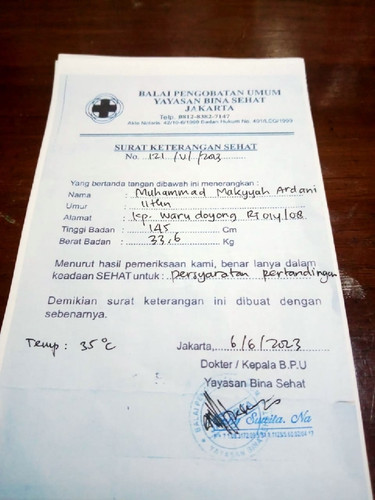 BALAI PENGOBATAN UMUM
YAYASAN BINA SEHAT
JAKARTA
Telp. 0812-8382-7147
SURAT KETERANGAN SEHAT
No. 121/VI/2023
Yang bertanda tangan dibawah ini menerangkan :
Nama : Muhammad Makyyah Ardani
Umur : 11thn
Alamat : kp. Waru doyong Rt 014/08
Tinggi Badan : 145 Cm
Berat Badan : 33,6 Kg
Menurut hasil pemeriksaan kami, benar lanya dalam
keadaan SEHAT untuk : persyaratan pertandingan
Demikian surat keterangan ini dibuat dengan
sebenarnya.
Temp : 35°C
Jakarta, 6/6/2023
Dokter / Kepala B.P.U
Yayasan Bina Sehat